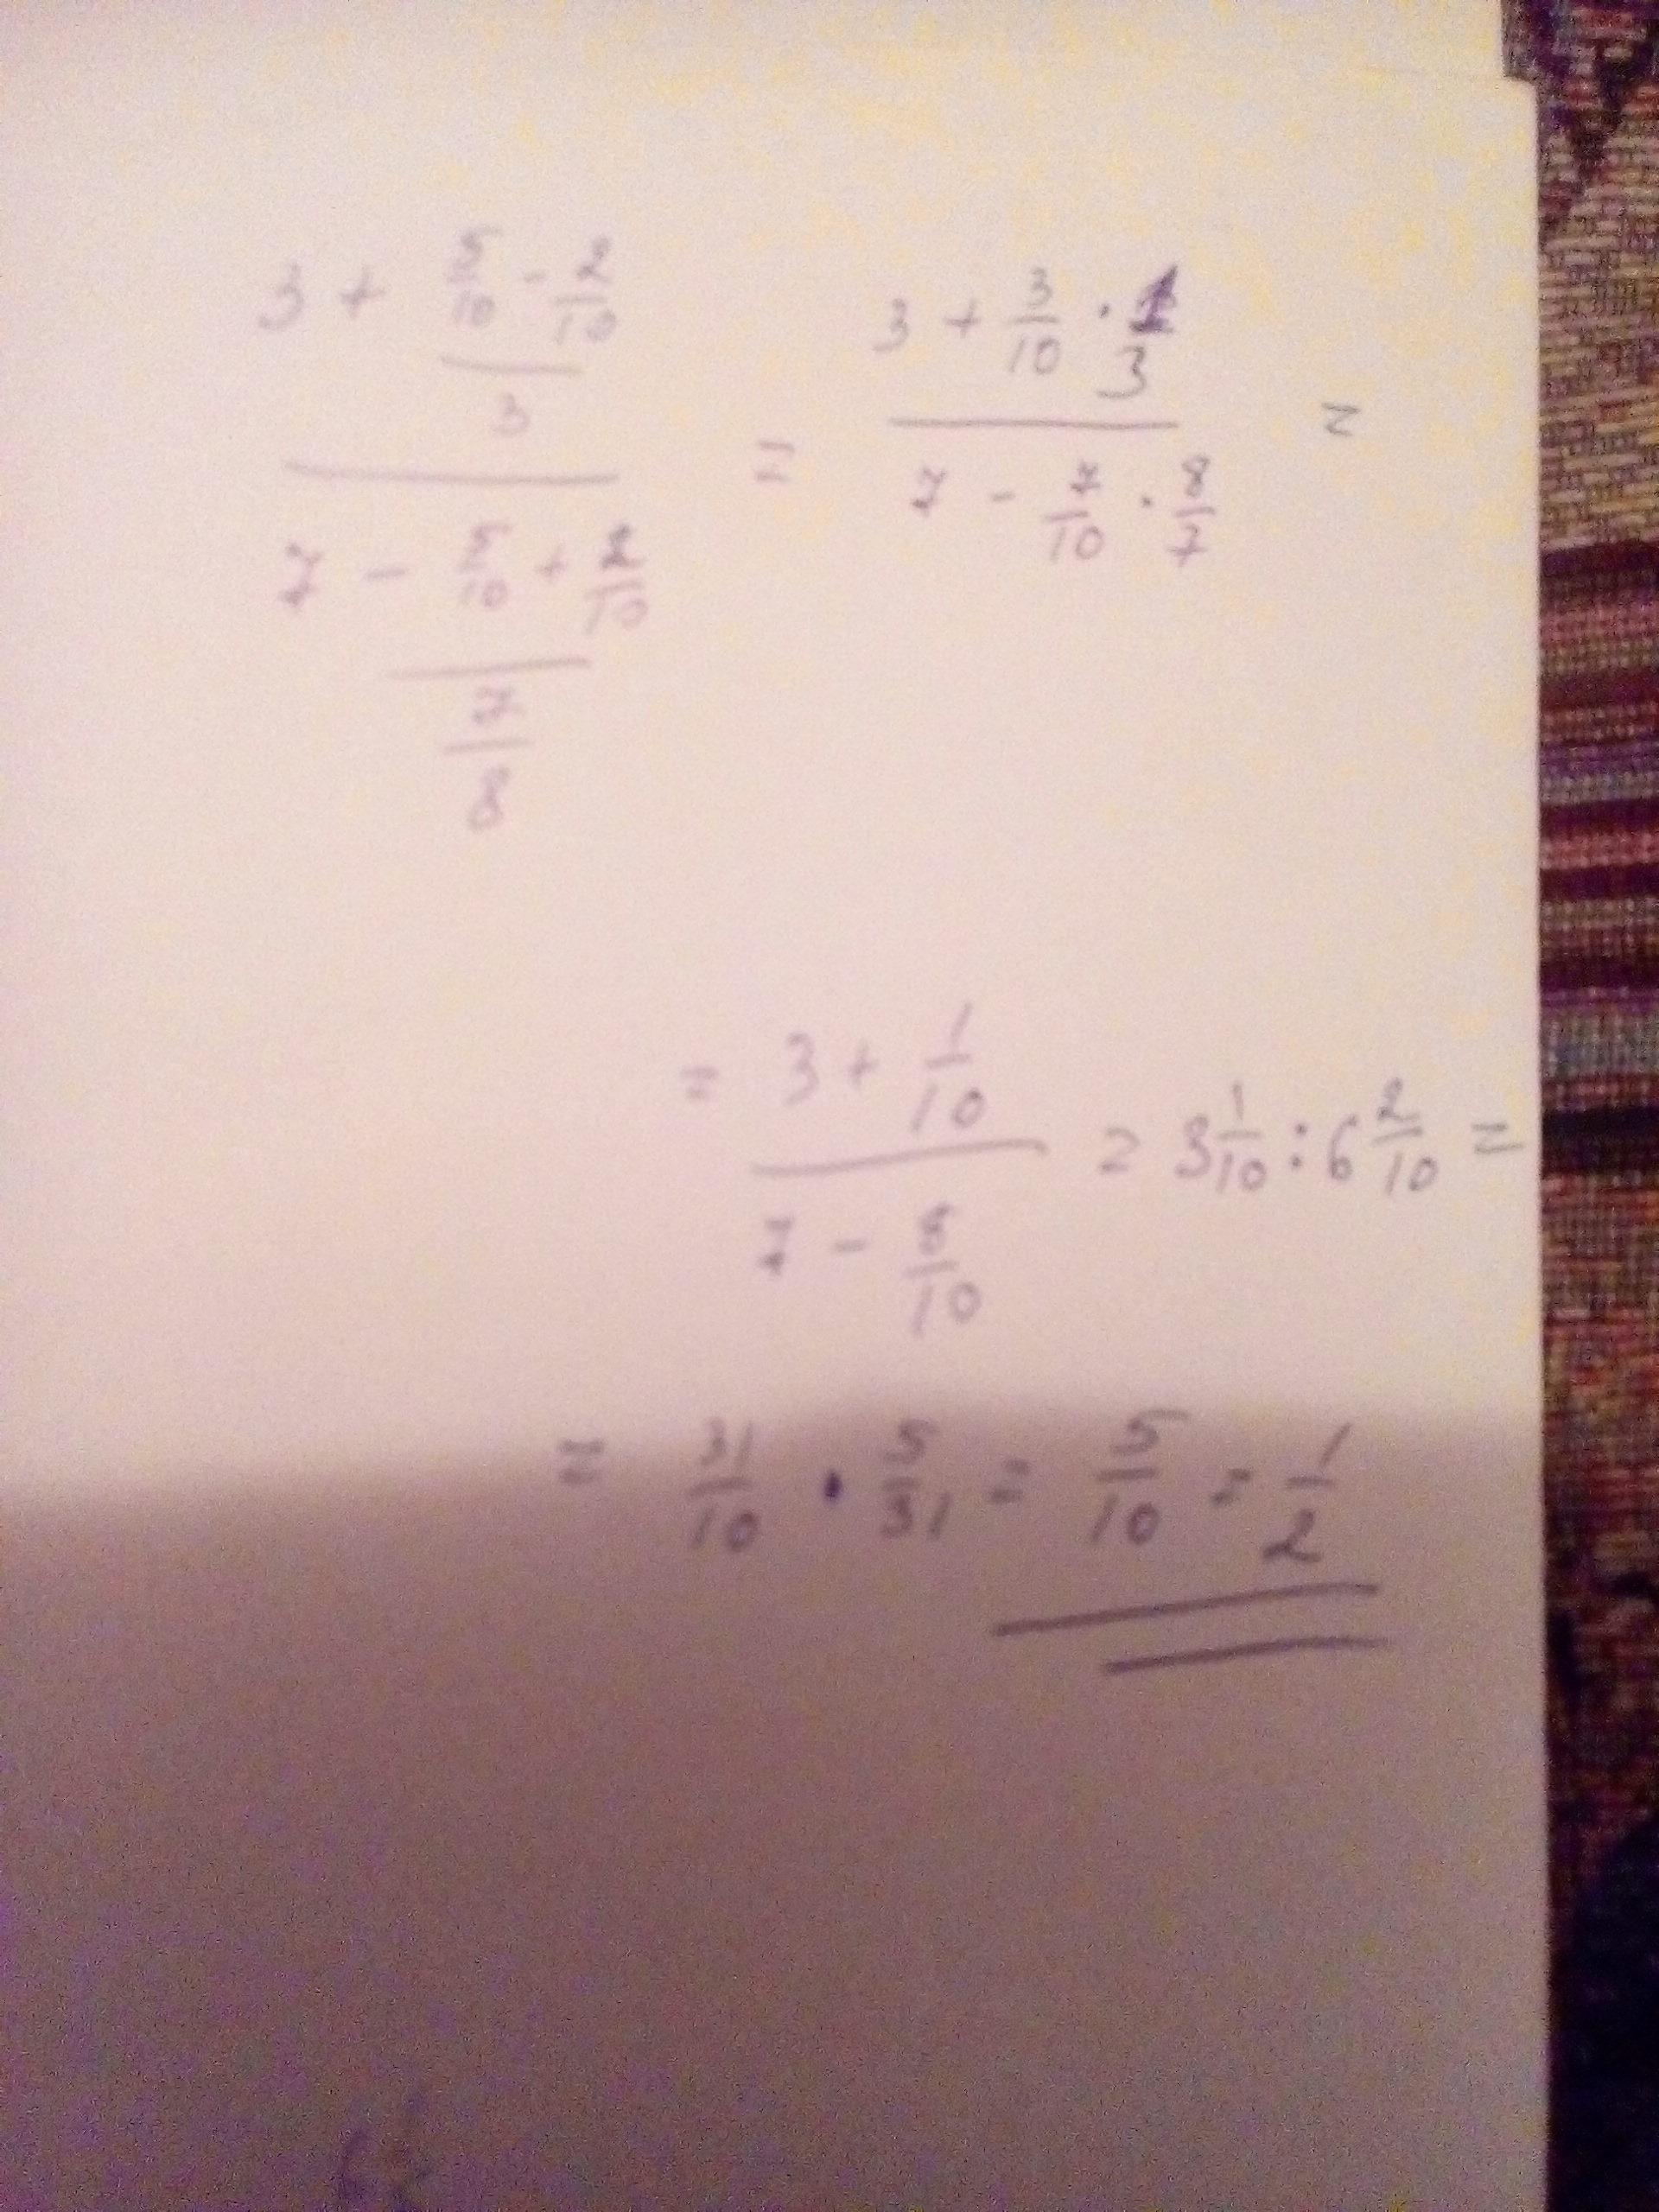 3 + (5/10 - 2/10)/3 / 7 - (5/10 + 2/10)/(7/8) = 3 + 3/10 · 1/3 / 7 - 7/10 · 8/7 =
= 3 + 1/10 / 7 - 8/10 = 3 1/10 : 6 2/10 =
= 31/10 · 5/31 = 5/10 = 1/2